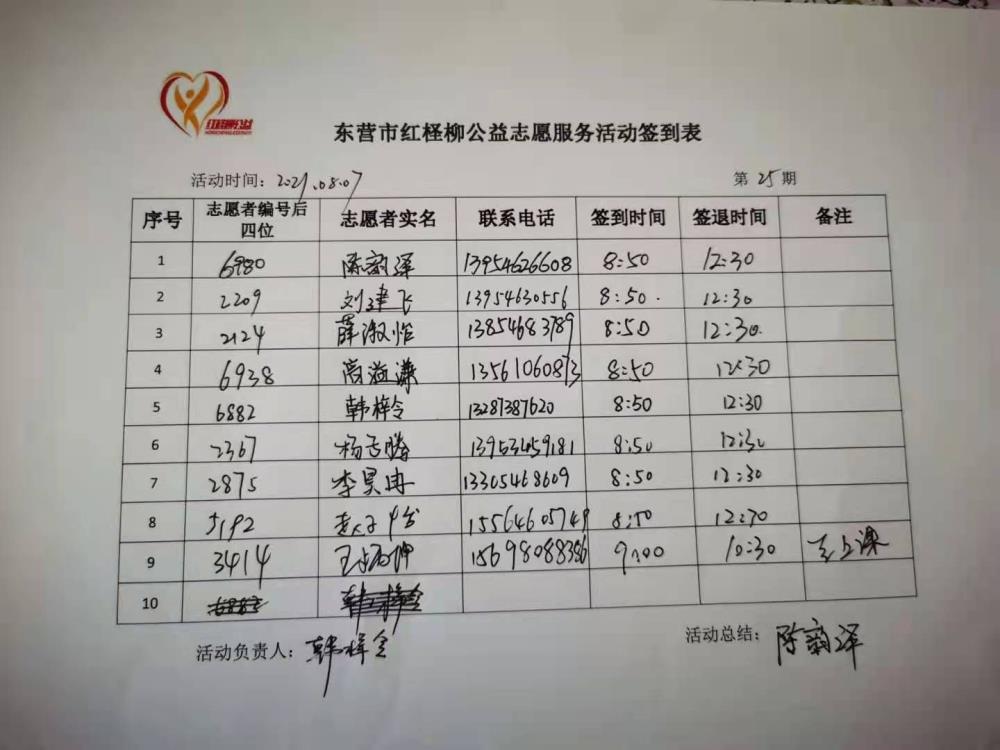 红柽柳公益
东营市红柽柳公益志愿服务活动签到表
活动时间：2021.08.07 第25期
序号 志愿者编号后四位 志愿者实名 联系电话 签到时间 签退时间 备注
1 6980 陈韵泽 13954626608 8:50 12:30
2 2209 刘建飞 13954630556 8:50. 12:30
3 2124 薛淑怡 13854683789 8:50 12:30.
4 6938 高溢谦 13561060873 8:50 12:30
5 6882 韩梓令 13287387620 8:50 12:30
6 2367 杨 腾 13953459181 8:50 12:30
7 2875 李昊冉 13305468609 8:50 12:30
8 5192 15564605749 8:50 12:30
9 3414 王 15698088386 9:00 10:30 去上课
10 6882 韩梓令
活动负责人：韩梓令 活动总结：陈韵泽